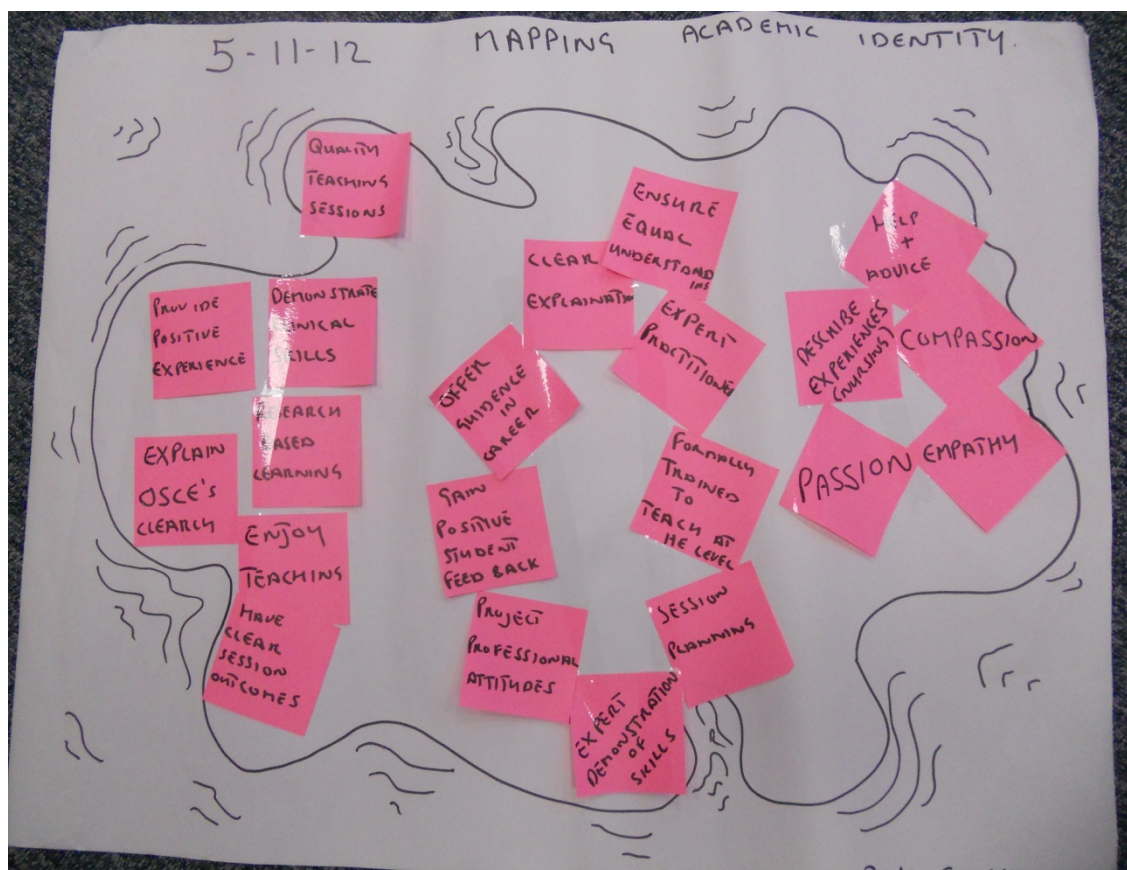 5-11-12 MAPPING ACADEMIC IDENTITY.
QUALITY
TEACHING
SESSIONS
PROVIDE
POSITIVE
EXPERIENCE
DEMONSTRATE
SKILLS
BASED
LEARNING
EXPLAIN
OSCE'S
CLEARLY
ENJOY
TEACHING
HAVE
CLEAR
SESSION
OUTCOMES
CLEAR
EXPLAINATION
ENSURE
EQUAL
UNDERSTAND
ING
EXPERT
PRACTITIONER
OFFER
GUIDENCE
IN
CAREER
GAIN
POSITIVE
STUDENT
FEED BACK
FORMALLY
TRAINED
TO
TEACH AT
HE LEVEL
PROJECT
PROFESSIONAL
ATTITUDES
SESSION
PLANNING
EXPERT
DEMONSTRATION
OF
SKILLS
HELP
+
ADVICE
DESCRIBE
EXPERIENCES
(NURSING)
COMPASSION
PASSION
EMPATHY